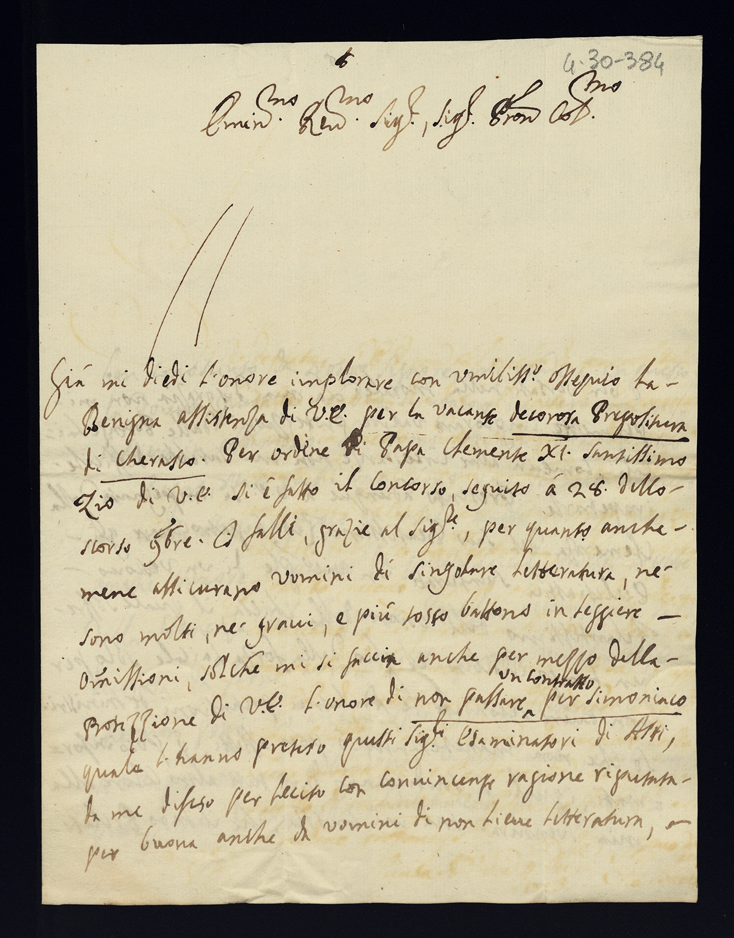 4-30-384
Emin.mo Rev.mo Sig.r, Sig.r Pron Col.mo
Già mi diedi l'onore implorare con umiliss.o ossequio la-
Benigna assistenza di V.E. per la vacante decorosa Prepositura
di Cherasco. Per ordine di Papa Clemente XI. Santissimo
Zio di V.E. si è fatto il Concorso, seguito a 28. dello-
scorso 9bre. I falli, grazie al Sig.re, per quanto anche-
mene assicurano uomini di singolare letteratura, nè
sono molti, nè gravi, e più tosto battono in leggiere -
omissioni, solche mi si faccia anche per mezzo della-
un Contratto
protezzione di V.E. l'onore di non passare per simoniaco
quale l'hanno preteso questi Sig.ri Esaminatori di Asti,
da me difeso per lecito con convincente ragione riputata-
per buona anche da uomini di non lieve letteratura, -